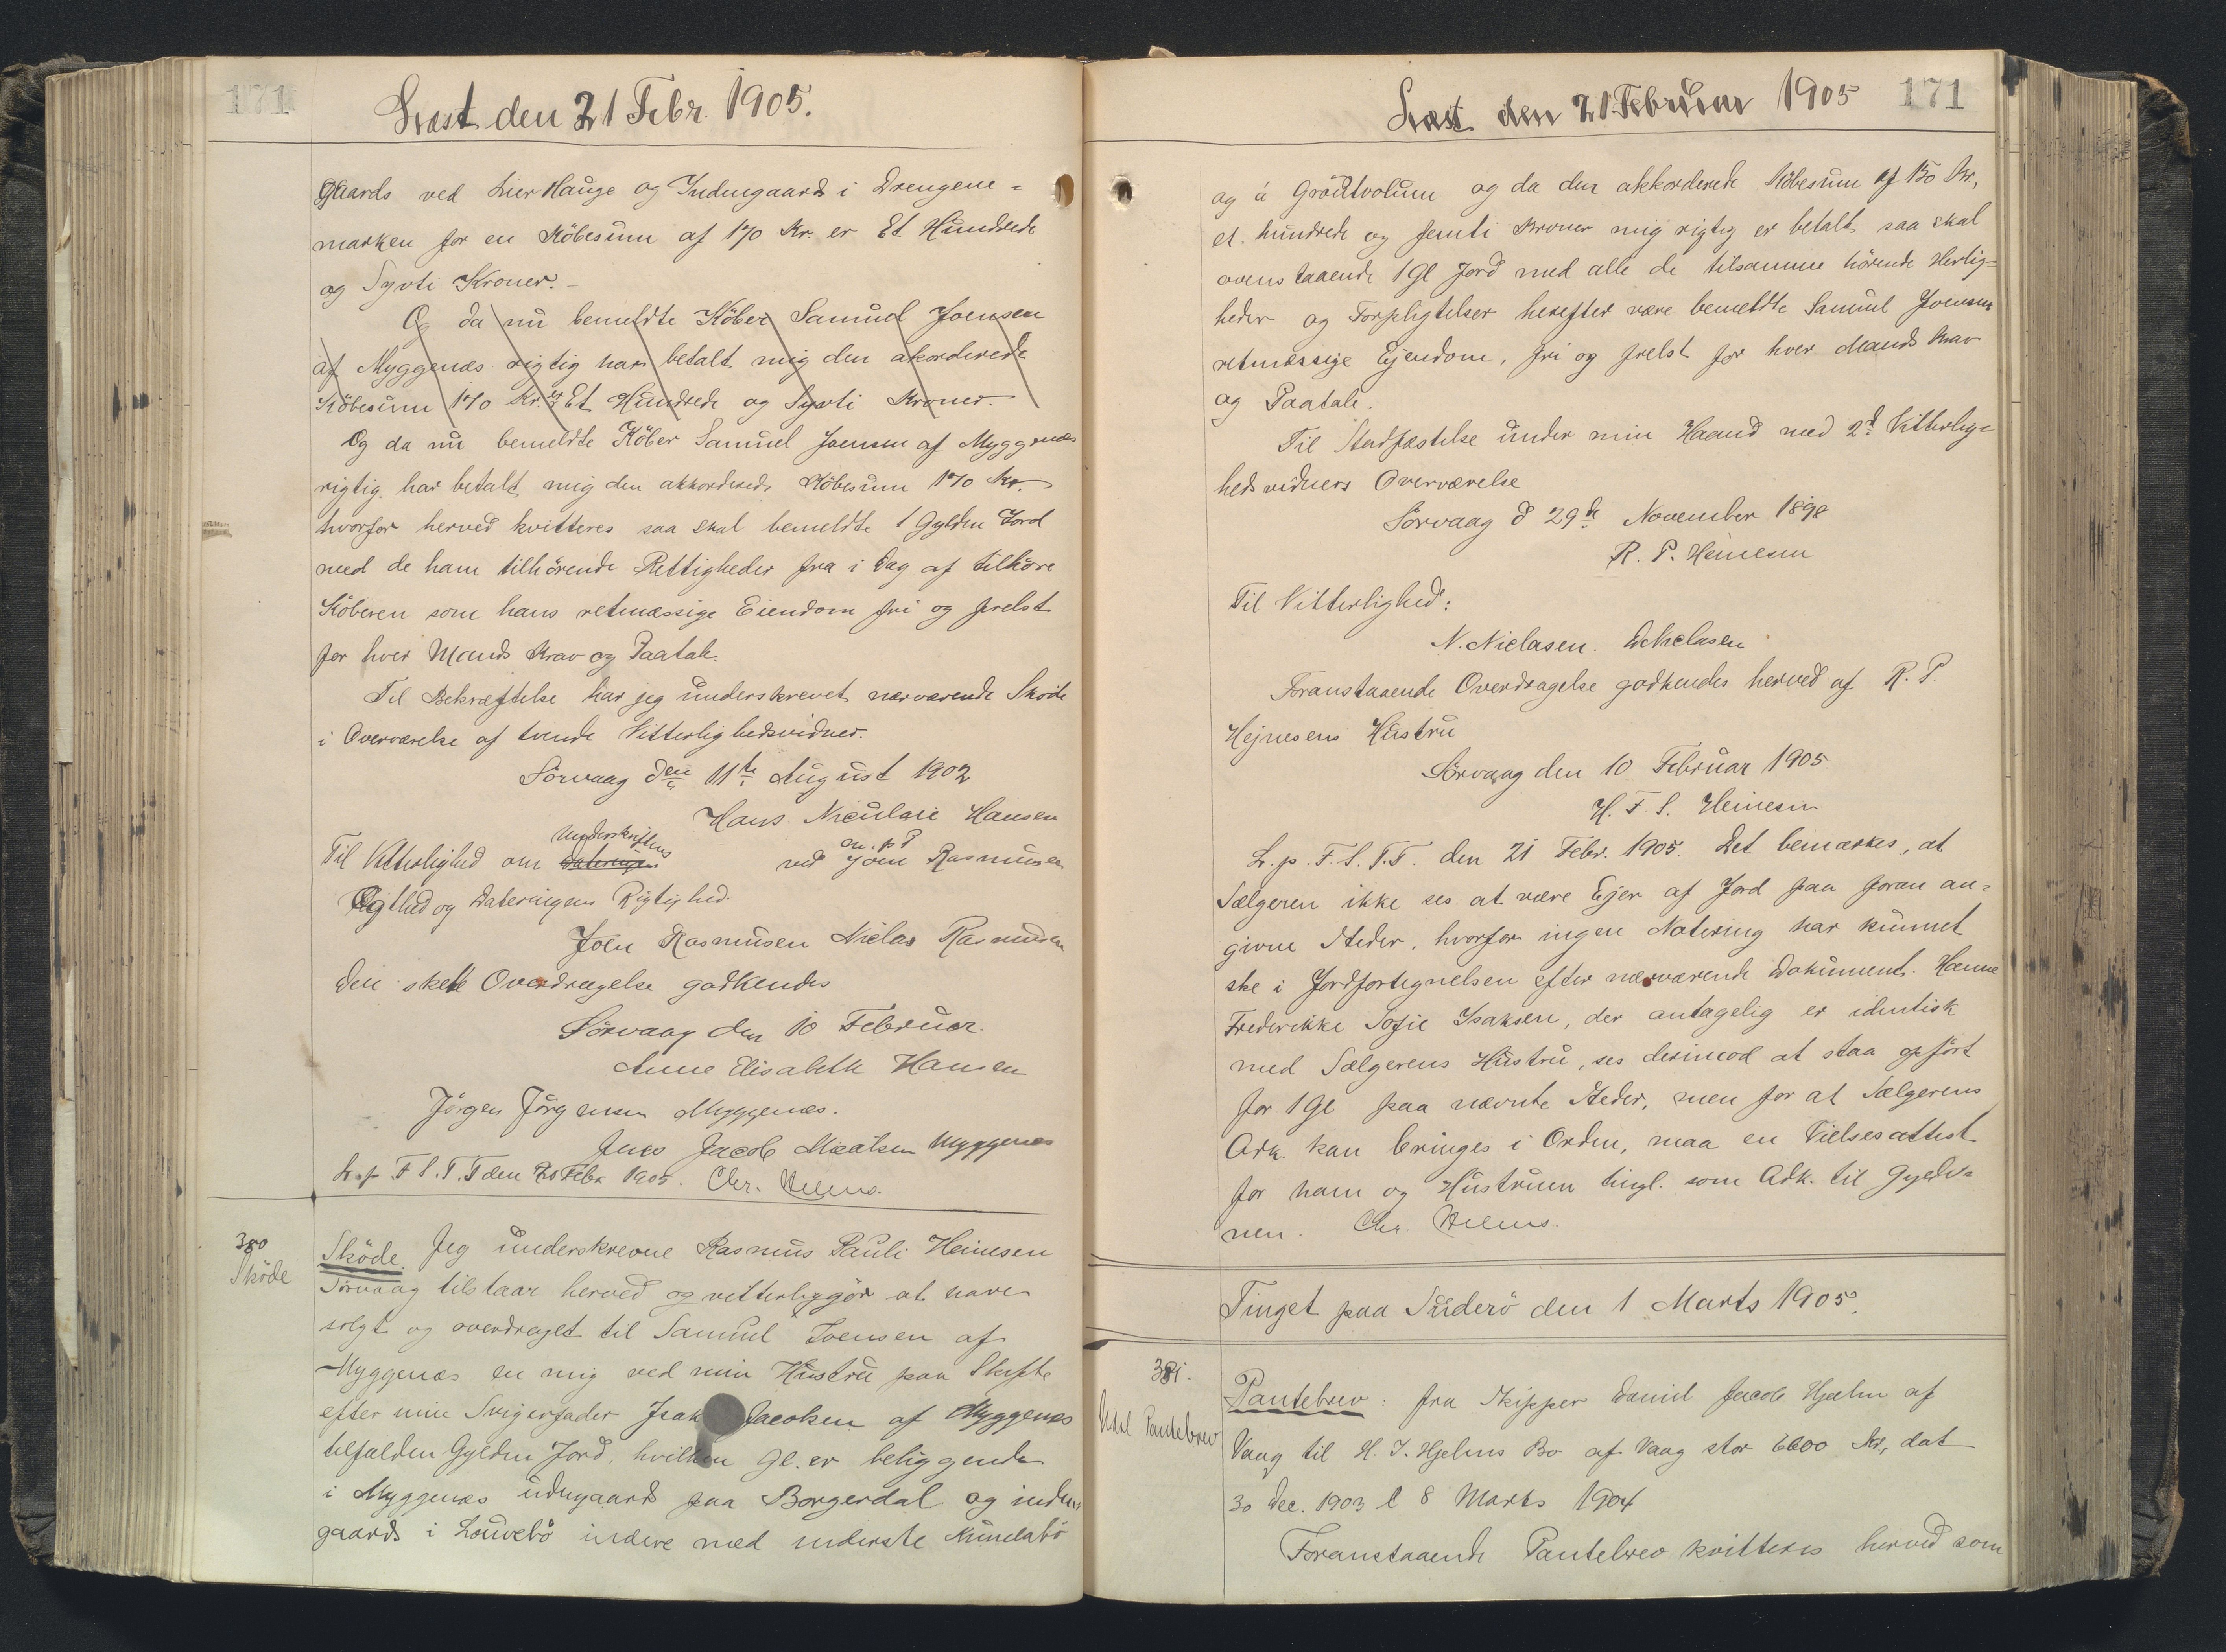 171
Læst den 21 Febr. 1905.
gaards ved Lier Hauge og Indengaards i Drengene-
marken for en Köbesum af 170 Kr. er Et Hundrede
og Syvti Kroner. -
Og da nu bemeldte Köber Samuel Joensen
af Myggenæs rigtig har betalt mig den akorderede
Köbesum 170 Kr. er Et Hundrede og Syvti Kroner.
Og da nu bemeldte Köber Samuel Joensen af Myggenæs
rigtig har betalt mig den akkorderede Köbesum 170 Kr.
hvorfor herved kvitteres saa skal bemeldte 1 Gylden Jord
med de ham tilhörende Rettigheder fra i Dag af tilhöre
Köberen som hans retmæssige Eiendom fri og frelst
for hver Mands Krav og Paatale.
Til Bekræftelse har jeg underskrevet nærværende Sköde
i Overværelse af tvende Vitterlighedsvidner.
Sörvaag den 11te August 1902
Hans Niculaie Hansen
Underskriftens m. p. P
Til Vitterlighed om Dateringens ved Joen Rasmusen
Ægthed og Dateringens Rigtighed.
Joen Rasmusen Niclas Rasmusen
Den skete Overdragelse godkendes
Sörvaag den 10 Februar.
Anne Elisabeth Hansen
Jörgen Jörgensen Myggenæs.
Jens Jacob Mæatsen Myggenæs
L. p. F S. T. T den 21 Febr 1905. Chr. Helms.
380
Sköde
Sköde. Jeg underskrevne Rasmus Pauli Heinesen
Sörvaag tilstaar herved og vitterliggör at have
solgt og overdraget til Samuel Joensen af
Myggenæs en mig ved min Hustru paa Skifte
efter min Svigerfader Isak Jacobsen af Myggenæs
tilfalden Gylden Jord, hvilken Gl. er beliggende
i Myggenæs udengaards paa Borgerdal og inden
gaards i Louvebö indere med inderste Nunelabö
Læst den 21 Februar 1905
171
og á Gröutvolum og da den akkorderede Köbesum af 150 Kr,
et. hundrede og femti Kroner mig rigtig er betalt, saa skal
ovenstaaende 1 Gl Jord med alle de tilsamme hörende Herlig-
heder og Forpligtelser herefter være bemeldte Samuel Joensens
retmæssige Ejendom, fri og frelst for hver Mands Krav
og Paatale.
Til Stadfæstelse under min Haand med 2de Vitterlig-
hedsvidners Overværelse
Sörvaag d 29de November 1898
R. P. Heinesen
Til Vitterlighed:
N. Nielasen. D Nielasen
Foranstaaende Overdragelse godkendes herved af R. P.
Hejnesens Hustru
Sörvaag den 10 Februar 1905
H. F. S. Heinesen
L. p. F. S. T. T. den 21 Febr. 1905. Det bemærkes, at
Sælgeren ikke ses at være Ejer af Jord paa foran an-
givne Steder, hvorfor ingen Notering har kunnet
ske i Jordfortegnelsen efter nærværende Dokument. Hanne
Frederikke Sofie Isaksen, der antagelig er identisk
med Sælgerens Hustru, ses derimod at staa opfört
for 1 Gl paa nævnte Steder, men for at Sælgerens
Adk. kan bringes i Orden, maa en Vielsesattest
for ham og Hustruen tingl. som Adk. til Gylde-
nen. Chr. Helms.
Tinget paa Süderö den 1 Marts 1905.
381.
Udsl Pantebrev
Pantebrev: fra Skipper Daniel Jacob Hjelm af
Vaag til H. J. Hjelms Bo af Vaag stor 6600 Kr, dat
30 Dec. 1903 l 8 Marts 1904
Foranstaaende Pantebrev kvitteres herved som